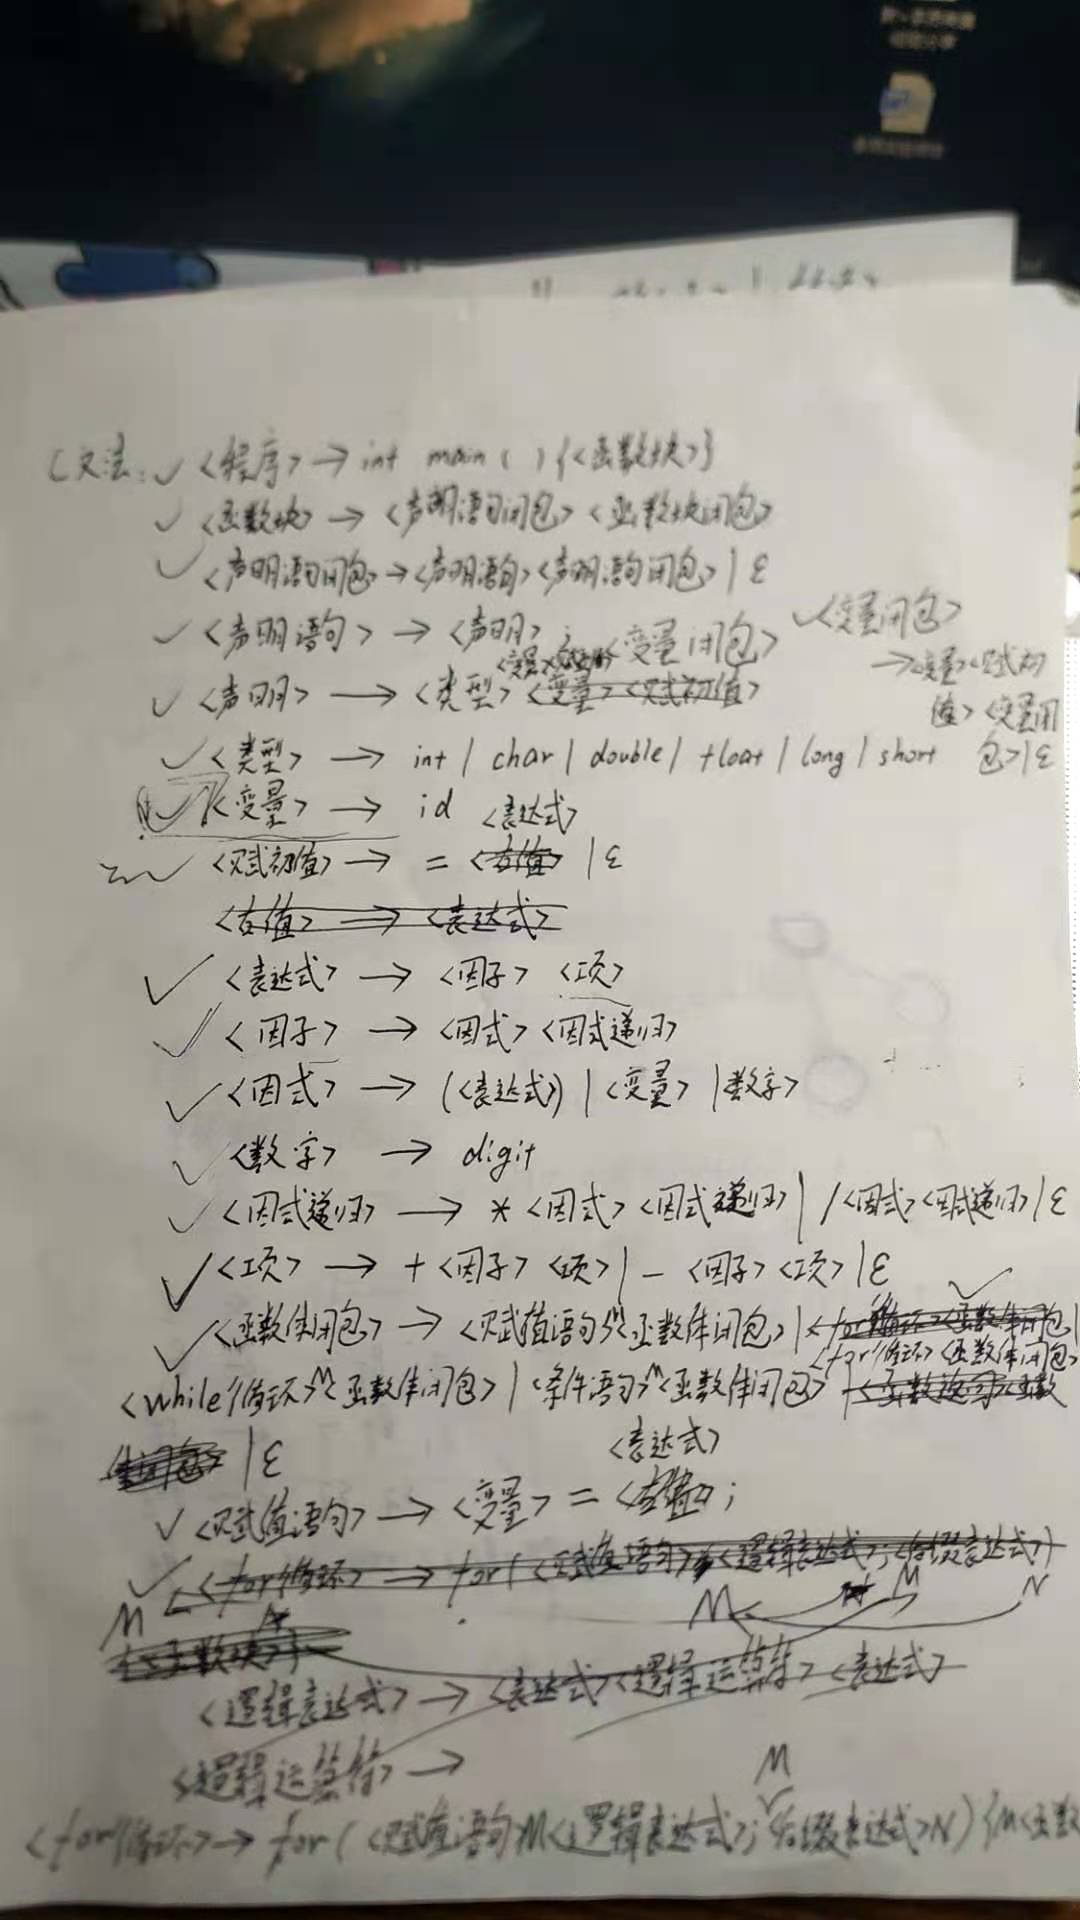 文法: <程序> → int main ( ) {<函数块>}
<函数块> → <声明语句闭包> <函数块闭包>
<声明语句闭包> → <声明语句> <声明语句闭包> | ε
<声明语句> → <声明> ; <变量闭包>
<变量闭包>
→ <变量> <赋初
值> <变量闭
包> | ε
<声明> → <类型> <变量> <赋初值>
<类型> → int | char | double | float | long | short
<变量> → id
<表达式>
<赋初值> → = <右值> | ε
<右值> → <表达式>
<表达式> → <因子> <项>
<因子> → <因式> <因式递归>
<因式> → (<表达式>) | <变量> | 数字>
<数字> → digit
<因式递归> → * <因式> <因式递归> | / <因式> <因式递归> | ε
<项> → + <因子> <项> | - <因子> <项> | ε
<函数体闭包> → <赋值语句> M <函数体闭包> | <for循环> <函数体闭包> |
<for循环> <函数体闭包>
<while循环> M <函数体闭包> | <条件语句> M <函数体闭包> |
| ε
<表达式>
<赋值语句> → <变量> = <右值> ;
<for循环> → for ( <赋值语句> <逻辑表达式> ; <后缀表达式> )
M M M N
<逻辑表达式> → <表达式> <逻辑运算符> <表达式>
<逻辑运算符> →
M
<for循环> → for ( <赋值语句> M <逻辑表达式> ; <后缀表达式> N ) { M <函数